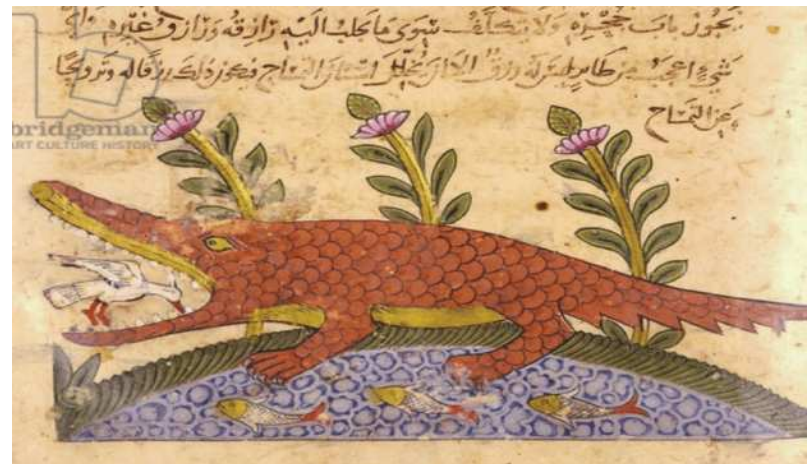 يجوز باب جحره ولا يتكلف سوى ما يجلب اليه رازقه ورازق غيره واي
شيء اعجب من طائر ليس له رزق الا ان يخلل اسنان التمساح فيكون ذلك رزقا له وترويحا
عن التمساح
b
bridgeman
ART CULTURE HISTORY